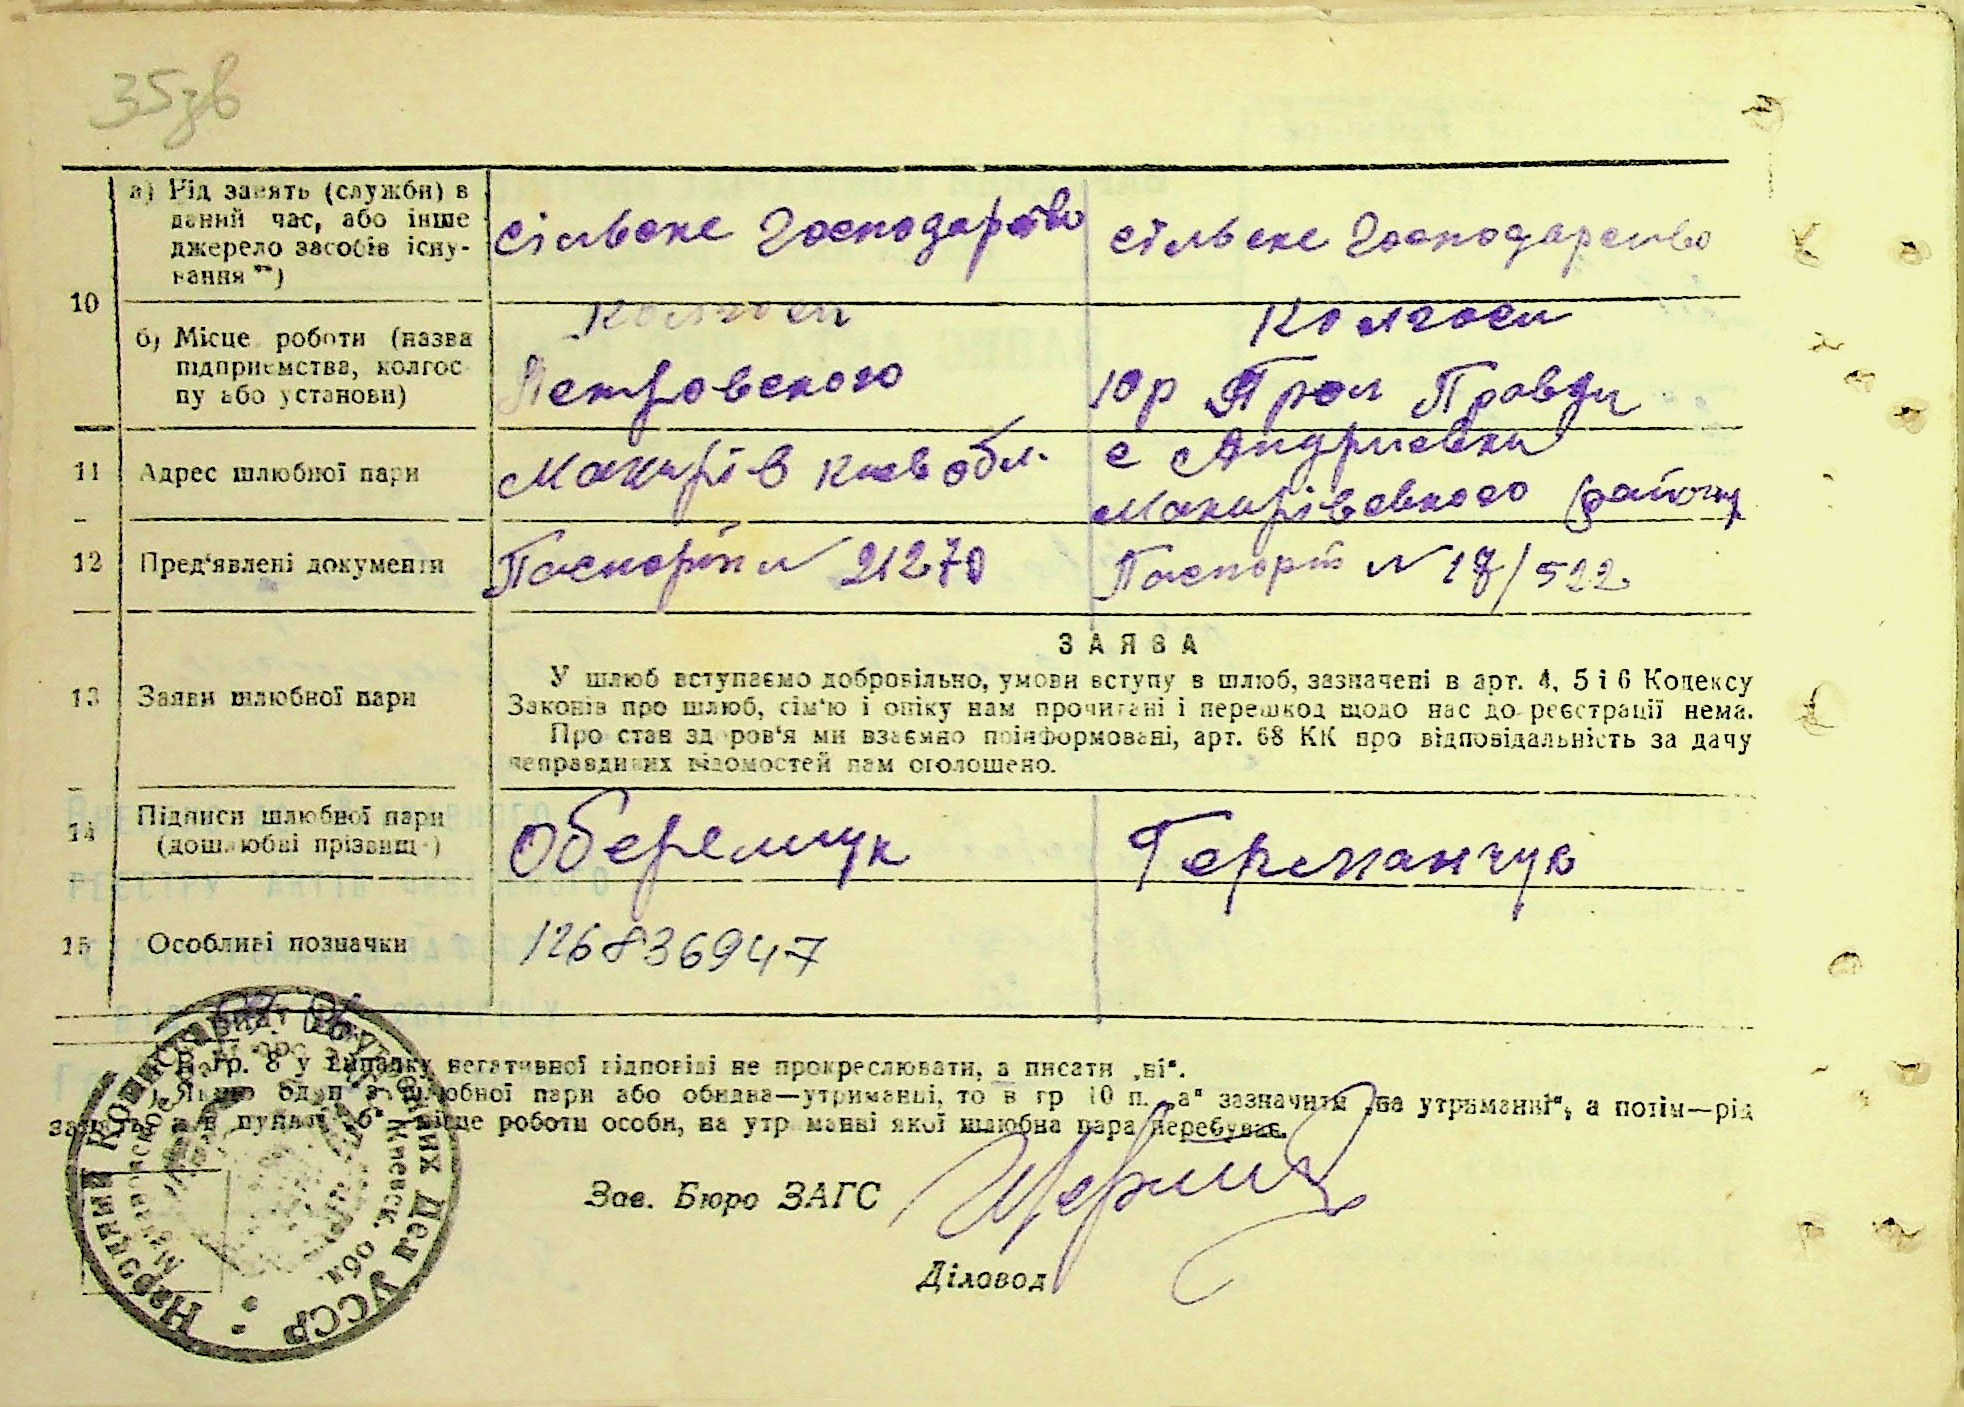 35зв
10
а) Рід занять (служби) в
даний час, або інше
джерело засобів існу-
вання **)
сільське господарство
сільске господарство
б) Місце роботи (назва
підприємства, колгос-
пу або установи)
Колгосп
Петровского
Колгосп
Правди
11
Адрес шлюбної пари
Макарів києв обл.
с Андриевка
Макарівського району
12
Пред‘явлені документи
Паспорт № 21270
Паспорт №
13
Заяви шлюбної пари
ЗАЯВА
У шлюб вступаємо добровільно, умови вступу в шлюб, зазначені в арт. 4, 5 і 6 Кодексу
Законів про шлюб, сім‘ю і опіку нам прочитані і перешкод щодо нас до реєстрації нема.
Про стан здоров‘я ми взаємно поінформовані, арт. 68 КК про відповідальність за дачу
неправдивих відомостей нам оголошено.
14
Підписи шлюбної пари
(дошлюбні прізвища)
Оберемчук
Германчук
15
Особливі позначки
126836947
В гр. 8 у випадку негативної відповіді не прокреслювати, а писати „ні“.
Якщо один з шлюбної пари або обидва—утриманці, то в гр 10 п. „а“ зазначити „на утриманні“, а потім—рід
занять, а в пункті „б“ місце роботи особи, на утриманні якої шлюбна пара перебуває.
Зав. Бюро ЗАГС
Діловод
Народний Комисариат Внутренних Дел УССР
Киевск. обл.